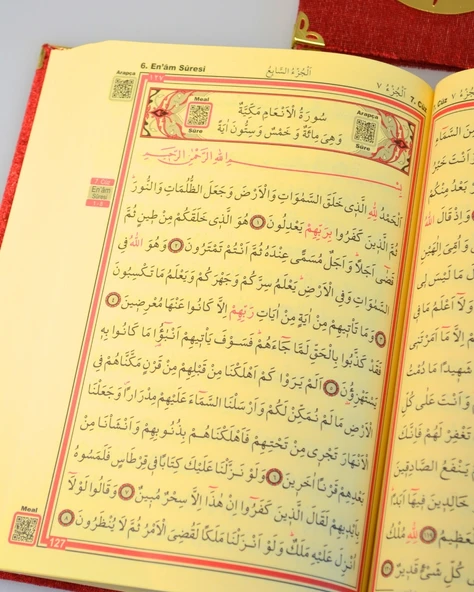 6. En'âm Sûresi
اَلْجُزْءُ السَّابِعُ
٧ اَلْجُزْءُ
7. Cüz
Arapça
١٢٧
Meal
Sûre
سُورَةُ الْاَنْعَامِ مَكِّيَّةٌ
وَهِيَ مِائَةٌ وَ خَمْسٌ وَسِتُّونَ اٰيَةً
Arapça
Sûre
بِسْمِ اللّٰهِ الرَّحْمٰنِ الرَّحِيمِ
7. Cüz
En'âm
Sûresi
اَلْحَمْدُ لِلّٰهِ الَّذِى خَلَقَ السَّمٰوَاتِ وَالْاَرْضَ وَجَعَلَ الظُّلُمَاتِ وَالنُّورَ
ثُمَّ الَّذِينَ كَفَرُوا بِرَبِّهِمْ يَعْدِلُونَ ١ هُوَ الَّذِى خَلَقَكُمْ مِنْ طِينٍ ثُمَّ
قَضٰٓى اَجَلًا وَاَجَلٌ مُسَمًّى عِنْدَهُ ثُمَّ اَنْتُمْ تَمْتَرُونَ ٢ وَهُوَ اللّٰهُ فِى
السَّمٰوَاتِ وَفِى الْاَرْضِ يَعْلَمُ سِرَّكُمْ وَجَهْرَكُمْ وَيَعْلَمُ مَا تَكْسِبُونَ
٣ وَمَا تَأْتِيهِمْ مِنْ اٰيَةٍ مِنْ اٰيَاتِ رَبِّهِمْ اِلَّا كَانُوا عَنْهَا مُعْرِضِينَ ٤
فَقَدْ كَذَّبُوا بِالْحَقِّ لَمَّا جَٓاءَهُمْ فَسَوْفَ يَأْتِيهِمْ اَنْبٰٓؤُا مَا كَانُوا بِهِ
يَسْتَهْزِؤُنَ ٥ اَلَمْ يَرَوْا كَمْ اَهْلَكْنَا مِنْ قَبْلِهِمْ مِنْ قَرْنٍ مَكَّنَّاهُمْ فِى
الْاَرْضِ مَا لَمْ نُمَكِّنْ لَكُمْ وَاَرْسَلْنَا السَّمَٓاءَ عَلَيْهِمْ مِدْرَارًا وَجَعَلْنَا
الْاَنْهَارَ تَجْرِى مِنْ تَحْتِهِمْ فَاَهْلَكْنَاهُمْ بِذُنُوبِهِمْ وَاَنْشَأْنَا مِنْ
بَعْدِهِمْ قَرْنًا اٰخَرِينَ ٦ وَلَوْ نَزَّلْنَا عَلَيْكَ كِتَابًا فِى قِرْطَاسٍ فَلَمَسُوهُ
بِاَيْدِيهِمْ لَقَالَ الَّذِينَ كَفَرُوا اِنْ هٰذَٓا اِلَّا سِحْرٌ مُبِينٌ ٧ وَقَالُوا لَوْلَٓا
اُنْزِلَ عَلَيْهِ مَلَكٌ وَلَوْ اَنْزَلْنَا مَلَكًا لَقُضِىَ الْاَمْرُ ثُمَّ لَا يُنْظَرُونَ ٨
Meal
127